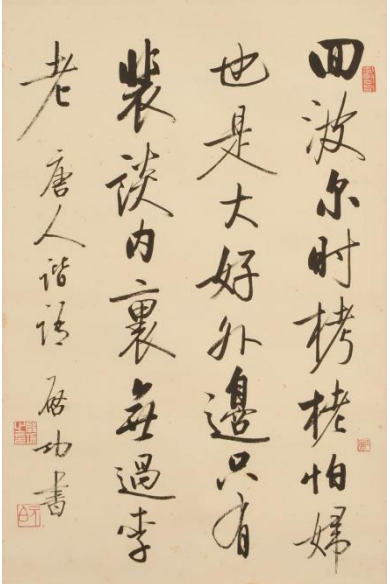 回波尔时栲栳怕婦
也是大好外邊只有
裴談内裏無過李
老 唐人谐语 啟功書